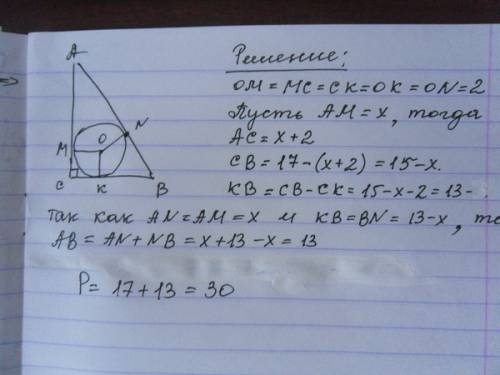 Решение:
OM = MC = CK = OK = ON = 2
Пусть AM = x, тогда
AC = x + 2
CB = 17 - (x + 2) = 15 - x.
KB = CB - CK = 15 - x - 2 = 13 -
так как AN = AM = x и KB = BN = 13 - x, то
AB = AN + NB = x + 13 - x = 13
P = 17 + 13 = 30
A
N
O
M
C
K
B